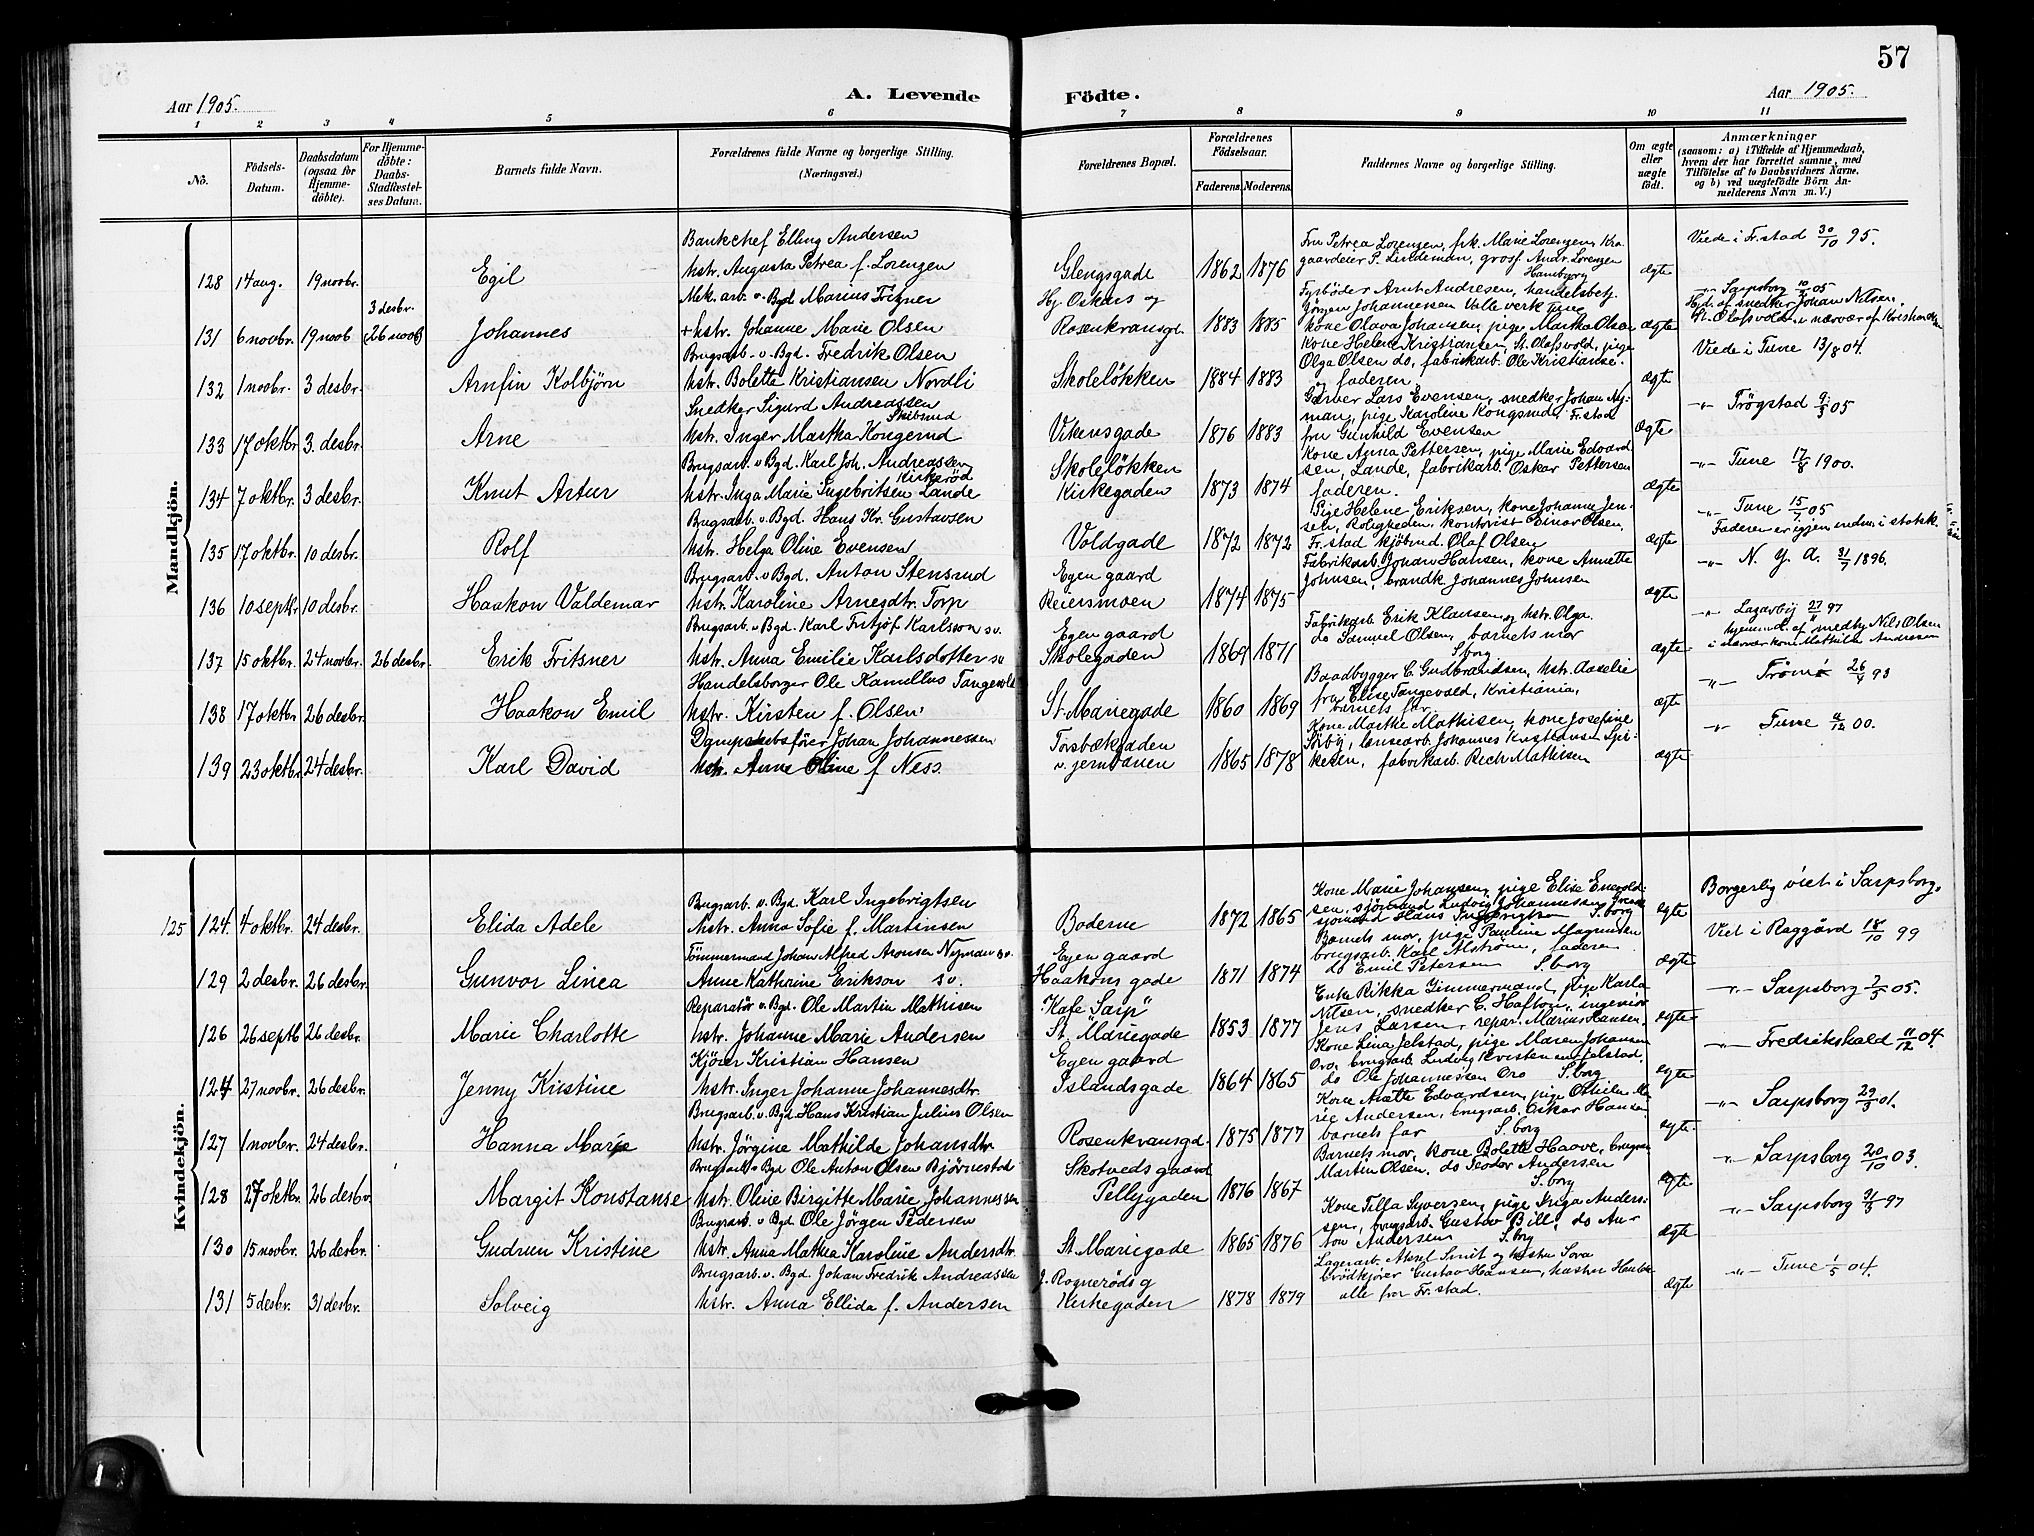 57
Aar 1905.
A. Levende Födte.
Aar 1905.
1 2 3 4 5 6 7 8 9 10 11
No.
Födsels-Datum.
Daabsdatum (ogsaa for Hjemme-döbte).
For Hjemme-döbte: Daabs-Stadfæstel-ses Datum.
Barnets fulde Navn.
Forældrenes fulde Navne og borgerlige Stilling. (Næringsvei.)
Forældrenes Bopæl.
Forældrenes Födselsaar.
Faderens. Moderens.
Faddernes Navne og borgerlige Stilling.
Om ægte eller uægte födt.
Anmærkninger
(saasom: a) i Tilfælde af Hjemmedaab, hvem der har forrettet samme, med Tilföielse af to Daabsvidners Navne, og b) ved uægtefödte Börn An-melderens Navn m. V.)
Mandkjön.
Bankchef Elling Andersen
128 14 aug. 19 novbr. Egil hstr. Augusta Petrea f. Lorenzen Glengsgade 1862 1876 ægte
Fru Petrea Lorenzen, frk. Marie Lorenzen, Kra-
gaardeier P. Lindeman, gross. Andr. Lorenzen
Hamborg
Viede i Fr.stad 30/10 95.
Mek. arb. v. Bgd Marius Frizner
131 6 novbr. 19 novb 3 desbr. (26 novb) Johannes hstr. Johanne Marie Olsen Hj. Oskars og Rosenkransgd. 1883 1885 ægte
Fyrböder Arnt Andresen, handelsbetj.
Jörgen Johannessen Valle verk Tune
kone Olava Johansen, pige Martha Olsen
Sarpsborg 10/6 05
Hjd. af snedker Johan Nilsen,
St. Olafsvold i nærvær af Kristian
Brugsarb. v. Bgd. Fredrik Olsen
132 1 novbr. 3 desbr. Arnfin Kolbjörn hstr. Bolette Kristiansen Nordli Skolelökken 1884 1883 ægte
Kone Helene Kristiansen, St. Olafsvold, pige
Olga Olsen do, fabrikarb. Ole Kristianse.
faderen.
Viede i Tune 13/8 04.
Snedker Sigurd Andreassen Skibrud
133 17 oktbr 3. desbr. Arne hstr. Inger Martha Kongerud Vikensgade 1876 1883 ægte
Garver Lars Evensen, snedker Johan Ny-
man, pige Karoline Kongsrud, Fr.stad
fru Gunhild Evensen
-"- Trögstad 9/5 05
Brugsarb. v Bgd. Karl Joh. Andreassen Kirkeröd
134 7 oktbr. 3 desbr. Knut Artur hstr. Inga Marie Ingebritsen Lande Skolelökken Kirkegaden 1873 1874 ægte
Kone Anna Pettersen, pige Marie Edvard
sen, Lande, fabrikarb. Oskar Pettersen
faderen.
-"- Tune 17/8 1900.
Brugsarb. v. Bgd. Hans Kr. Gustavsen
135 17 oktbr. 10 desbr. Rolf hstr. Helga Oline Evensen Voldgade 1872 1872 ægte
Pige Helene Eriksen, kone Johanne Jen-
sen, Roligheden, kontorist Einar Olsen,
Fr.stad kjöbmd. Olaf Olsen
-"- Tune 15/7 05
Faderen er igjen indm. i statsk.
Brugsarb. v Bgd. Anton Stensrud
136 10 septbr 10 desbr. Haakon Valdemar hstr. Karoline Arnesdtr. Torp Egen gaard Reiersmoen 1874 1875 ægte
Fabrikarb. Johan Hansen, kone Annette
Johnsen, brandk. Johannes Johnsen
-"- N. Y. A. 31/7 1896.
Brugsarb. v Bgd. Karl Fritjof Karlsson sv.
137 15 oktbr. 24 novbr. 26 desbr. Erik Fritsner hstr. Anna Emilie Karlsdotter sv Egen gaard Skolegaden 1869 1871 ægte
Fabrikarb. Erik Klausen og hstr. Olga.
do Samuel Olsen, barnets mor
S.borg
27/11 97
hjemmd. af smedby Nils Olsen
i nærvær kone Mathilde Andresen
Handelsborger Ole Kamillus Tangevold
138 17 oktbr 26 desbr. Haakon Emil hstr. Kirsten f. Olsen St. Mariegade 1860 1869 ægte
Baadbygger C. Gudbrandsen, hstr. Aaselie
fru Elise Tangevald, Kristiania,
barnets far.
-"- Tromö 26/4 93
Dampskibsförer Johan Johannessen
139 23 oktbr. 24 desbr. Karl David hstr. Anne Oline f Ness. Torsbækgaden v. jernbanen 1865 1878 ægte
Kone Marthe Mathisen, kone Josefine
Sörby, lensearb. Johannes Kristiansen
fabrikarb. Rich Mathisen
-"- Tune 11/12 00.
Kvindekjön.
Brugsarb. v. Bgd. Karl Ingebrigtsen
125 124. 4 oktbr. 24 desbr. Elida Adele hstr. Anna Sofie f. Martinsen Boderne 1872 1865 ægte
Kone Marie Johansen, pige Elise Enevold-
sen, sjömand Ludvig Johannessen
sjömand Hans Ingebrigtsen S.borg
Borgerlig viet i Sarpsborg.
Tömmermand Johan Alfred Aronsen Nyman sv.
129 2 desbr. 26 desbr. Gunvor Linea Anne Kathrine Erikson sv. Egen gaard Haakons gade 1871 1874 ægte
Barnets mor, pige Pauline Magnusen
brugsarb. Karl Alström, faderen
do Emil Petersen S.borg
Viet i Raggård 18/10 99
Reparatör v. Bgd. Ole Martin Mathisen
126 26 septb 26 desbr. Marie Charlotte hstr. Johanne Marie Andersen "Kafe Sarp" St. Mariegade 1853 1877 ægte
Enke Rikka Timmermand, pige Karla
Nilsen, snedker C. Hafton, ingeniör
Jens Larsen, repar. Marius Hansen.
-"- Sarpsborg 7/5 05.
Kjörer Kristian Hansen
124 27 novbr. 26 desbr. Jenny Kristine hstr. Inger Johanne Johannesdtr. Egen gaard Islandsgade 1864 1865 ægte
Kone Lina Jelstad, pige Maren Johansen
Oro, brugsarb. Ludvig Kristensen Jelstad.
do Ole Johannessen Oro S.borg
-"- Fredrikshald 11/12 04.
Brugsarb. v. Bgd Hans Kristian Julius Olsen
127 1 novbr. 24 desbr. Hanna Marie hstr. Jörgine Mathilde Johansdtr Rosenkransgd. 1875 1877 ægte
Kone Anette Edvardsen, pige Othilie Ma-
rie Andersen, brugsarb. Oskar Hansen
barnets far S.borg
-"- Sarpsborg 29/3 01.
Brugsarb v Bgd Ole Anton Olsen Björnestad
128 27 oktbr. 26 desbr. Margit Konstanse hstr. Oline Birgitte Marie Johannessen Skotvedsgaard Pellygaden 1876 1867 ægte
Barnets mor, kone Bolette Haave, brugsm
Martin Olsen, do Teodor Andersen
S.borg
-"- Sarpsborg 20/10 03.
Brugsarb. v Bgd Ole Jörgen Pedersen
130 15 novbr. 26 desbr. Gudrun Kristine hstr. Anna Mathea Karoline Andersdtr. St. Mariegade 1865 1876 ægte
Kone Tilla Syversen, pige Inga Anders-
sen, brugsarb. Gustav Bill, do An-
ton Andersen S.borg
-"- Sarpsborg 31/3 97
Brugsarb. v. Bgd. Johan Fredrik Andreassen
131 5 desbr. 31 desbr. Solveig hstr. Anna Ellida f. Andersen J. Rogneröds g Kirkegaden 1878 1879 ægte
Lagerarb. Aksel Smit og hustru Sara
brödkjörer Gustav Hansen, hustru Hansen
alle fra Fr.stad.
-"- Tune 1/5 04.